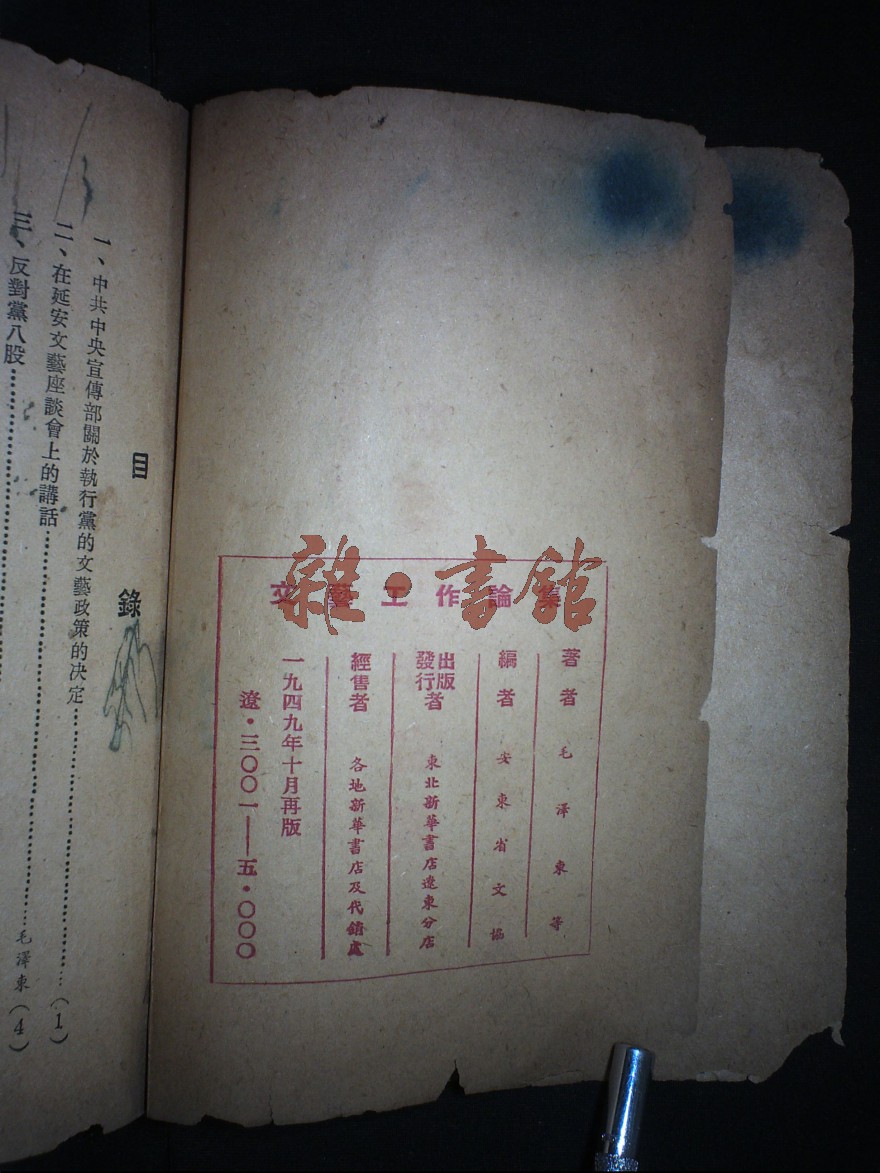 雜·書館
文藝工作論集
著者 毛澤東等
編者 安東省文協
出版發行者 東北新華書店遼東分店
經售者 各地新華書店及代銷處
一九四九年十月再版
遼·三〇〇一——五·〇〇〇
目錄
一、中共中央宣傳部關於執行黨的文藝政策的决定……(1)
二、在延安文藝座談會上的講話……毛澤東(4)
三、反對黨八股……